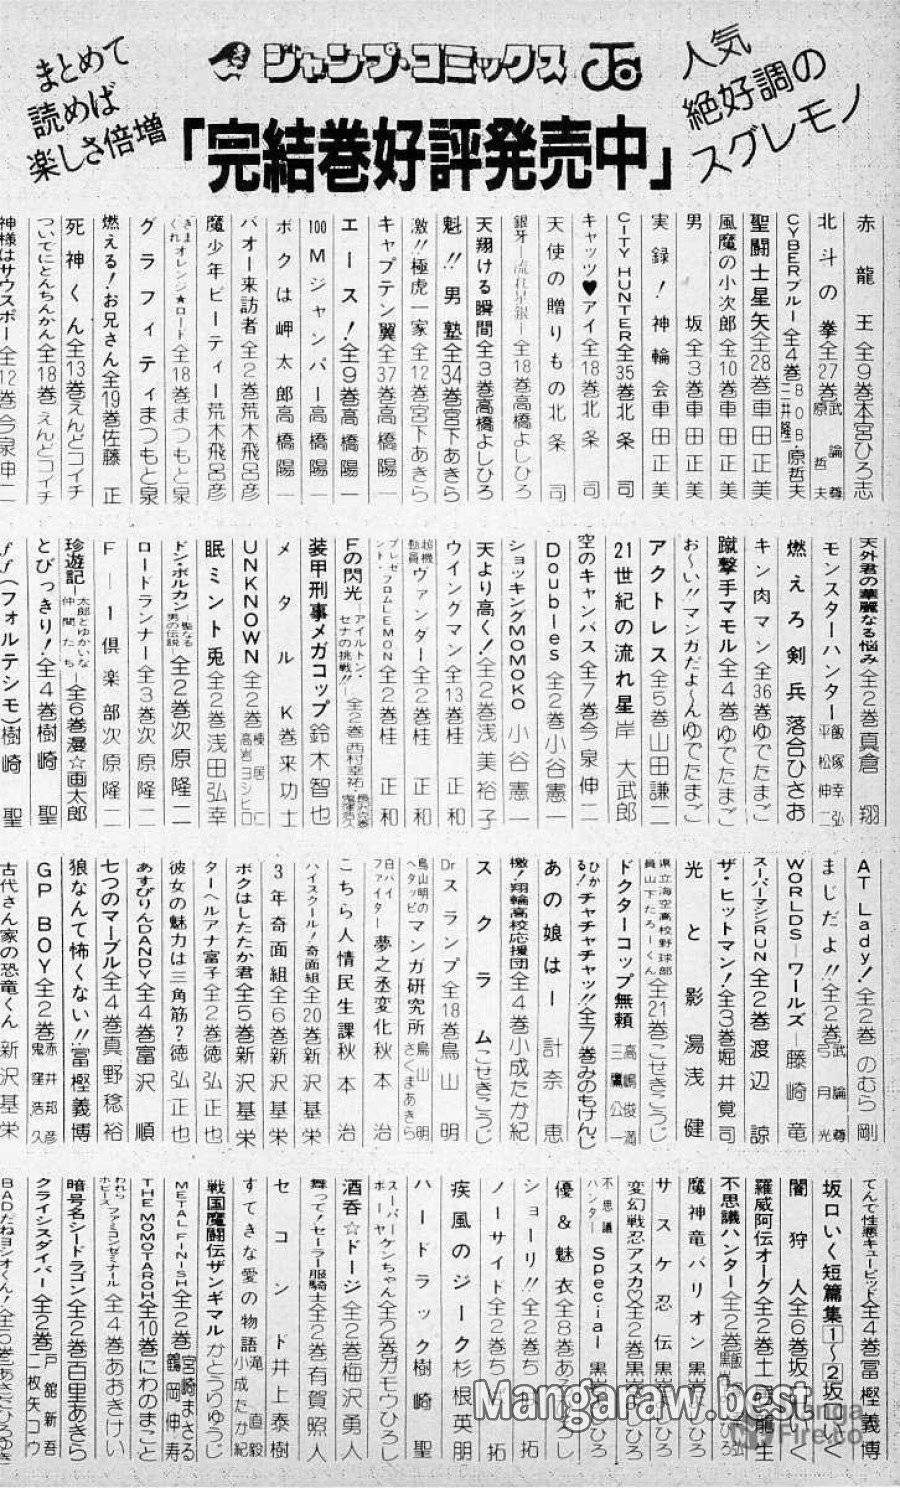 ジャンプ・コミックス
人気
絶好調の
スグレモノ
まとめて
読めば
楽しさ倍増
「完結巻好評発売中」
赤龍王全9巻本宮ひろ志
北斗の拳全27巻武論尊 原哲夫
CYBERブルー全4巻BOB・原哲夫 三井隆一
聖闘士星矢全28巻車田正美
風魔の小次郎全10巻車田正美
男坂全3巻車田正美
実録!神輪会車田正美
CITY HUNTER全35巻北条司
キャッツ♥アイ全18巻北条司
天使の贈りもの北条司
銀牙―流れ星銀―全18巻高橋よしひろ
天翔ける瞬間全3巻高橋よしひろ
魁!!男塾全34巻宮下あきら
激!!極虎一家全12巻宮下あきら
キャプテン翼全37巻高橋陽一
エース!全9巻高橋陽一
100Mジャンパー高橋陽一
ボクは岬太郎高橋陽一
バオー来訪者全2巻荒木飛呂彦
魔少年ビーティー荒木飛呂彦
きまぐれオレンジ★ロード全18巻まつもと泉
グラフィティまつもと泉
燃える!お兄さん全19巻佐藤正
死神くん全13巻えんどコイチ
ついでにとんちんかん全18巻えんどコイチ
神様はサウスポー全12巻今泉伸二
天外君の華麗なる悩み全2巻真倉翔
モンスターハンター飯塚幸弘 平松伸二
燃えろ剣兵落合ひさお
キン肉マン全36巻ゆでたまご
蹴撃手マモル全4巻ゆでたまご
お〜い!!マンガだよ〜んゆでたまご
アクトレス全5巻山田謙二
21世紀の流れ星岸大武郎
空のキャンバス全7巻今泉伸二
Doubles全2巻小谷憲一
ショッキングMOMOKO小谷憲一
天より高く!全2巻浅美裕子
ウイングマン全13巻桂正和
超機動員ヴァンダー全2巻桂正和
プレゼント・フロムLEMON全2巻桂正和
Fの閃光―アイルトン・セナの挑戦!!―全2巻西村幸祐
装甲刑事メガコップ鈴木智也
メタルK巻来功士
UNKNOWN全2巻横居仁 高岩ヨシヒロ
眠ミント兎全2巻浅田弘幸
ドン・ボルカン―聖なる男の伝説全2巻次原隆二
ロードランナー全3巻次原隆二
F―1倶楽部次原隆二
珍遊記―太郎とゆかいな仲間たち―全6巻漫☆画太郎
とびっきり!全4巻樹崎聖
ff(フォルテシモ)樹崎聖
AT Lady!全2巻のむら剛
まじだよ!!全2巻武論尊 弓月光
WORLDS―ワールズ―藤崎竜
スーパーマシンRUN全2巻渡辺諒
ザ・ヒットマン!全3巻堀井覚司
光と影湯浅健
県立海空高校野球部員山下たろーくん全21巻こせきこうじ
ドクターコップ無頼高嶋俊満 三鷹公一
ひかる!チャチャチャッ!!全7巻みのもけんじ
あの娘は―計奈恵
撤!翔輪高校応援団全4巻小成たか紀
スクラムこせきこうじ
Drスランプ全18巻鳥山明
鳥山明のヘタッピマンガ研究所鳥山明 さくまあきら
白バイファイター夢之丞変化秋本治
こちら人情民生課秋本治
ハイスクール!奇面組全20巻新沢基栄
3年奇面組全6巻新沢基栄
ボクはしたたか君全5巻新沢基栄
ターヘルアナ富子全2巻徳弘正也
彼女の魅力は三角筋?徳弘正也
あすぴりんDANDY全4巻富沢順
七つのマーブル全4巻真野稔裕
狼なんて怖くない!!冨樫義博
GP BOY全2巻赤井邦彦 鬼窪浩久
古代さん家の恐竜くん新沢基栄
てんで性悪キューピッド全4巻冨樫義博
坂口いく短篇集1〜2坂口いく
闇狩人全6巻坂口いく
羅威阿伝オーグ全2巻土屋前生
不思議ハンター全2巻
魔神竜バリオン黒岩よしひろ
サスケ忍伝黒岩よしひろ
変幻戦忍アスカ♡全2巻黒岩よしひろ
不思議ハンターSpecial黒岩よしひろ
優&魅衣全8巻あろひろし
ショーリ!!全2巻ちば拓
ノーサイド全2巻ちば拓
疾風のジーク杉根英朋
ハードラック樹崎聖
スーパーボーヤーケンちゃん全2巻ガモウひろし
酒呑☆ドージ全2巻梅沢勇人
舞って!セーラー服騎士全2巻有賀照人
セコンド井上泰樹
すてきな愛の物語滝直毅 小成たか紀
戦国魔闘伝ザンギマルかとうりゅうじ
METAL FINISH全2巻宮崎まさる 鶴岡伸寿
THE MOMOTAROH全10巻にわのまこと
われらホビーズファミコンゼミナール全4巻あおきけい
暗号名シードラゴン全2巻百里あきら
クライシスダイバー全2巻戸舘新吾 二枚矢コウ
BADだねヨシオくん!全5巻あさだひろゆき
Mangaraw.best